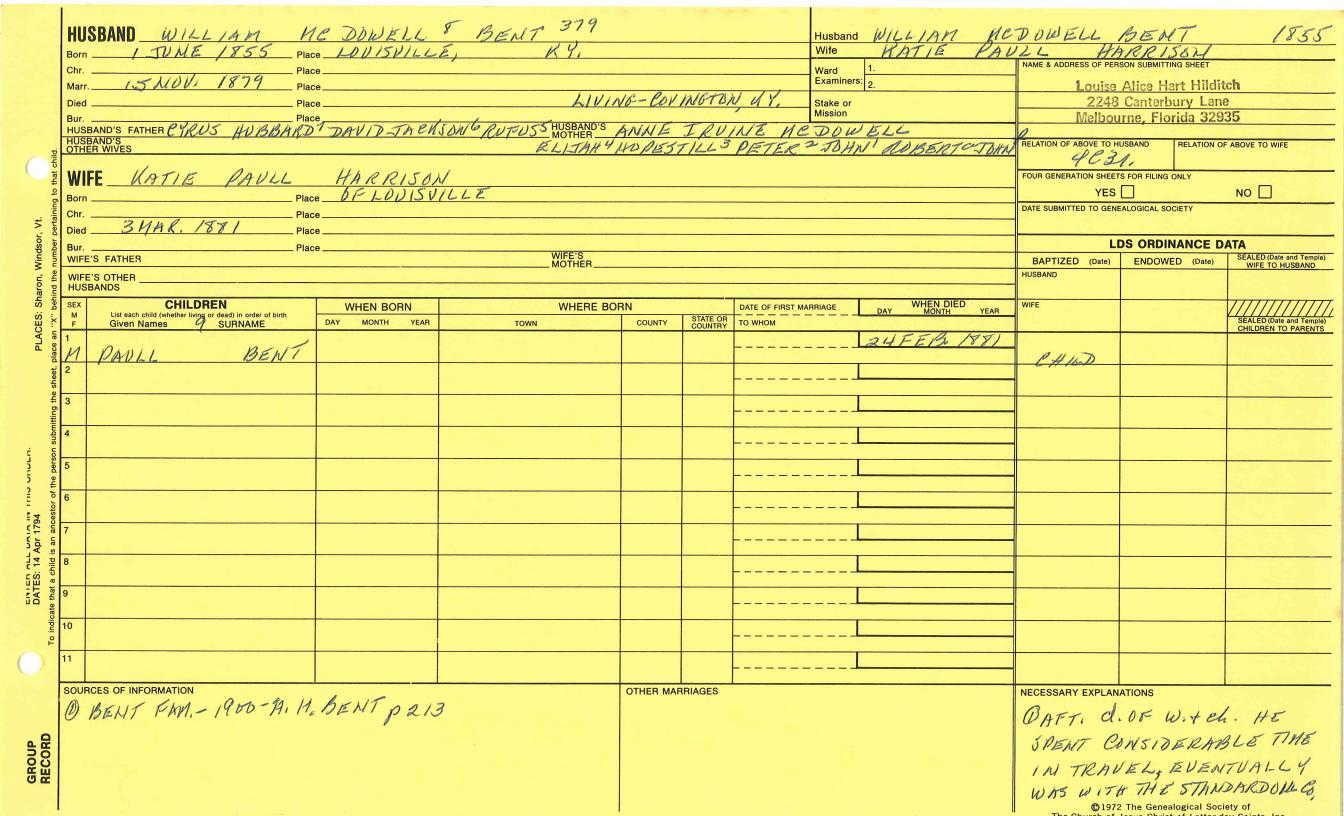 HUSBAND WILLIAM MCDOWELL 8 BENT 379
Born 1 JUNE 1855 Place LOUISVILLE, KY.
Chr. Place
Marr. 15 NOV. 1879 Place
Died Place LIVING-COVINGTON, KY.
Bur. Place
HUSBAND'S FATHER CYRUS HUBBARD7 DAVID JACKSON6 RUFUS5 HUSBAND'S MOTHER ANNE IRVINE MCDOWELL
HUSBAND'S OTHER WIVES ELIJAH4 HOPESTILL3 PETER2 JOHN1 ROBERT JOHN
WIFE KATIE PAULL HARRISON
Born Place OF LOUISVILLE
Chr. Place
Died 3 MAR. 1881 Place
Bur. Place
WIFE'S FATHER WIFE'S MOTHER
WIFE'S OTHER HUSBANDS
Husband WILLIAM MCDOWELL BENT 1855
Wife KATIE PAULL HARRISON
Ward Examiners: 1.
2.
Stake or Mission
NAME & ADDRESS OF PERSON SUBMITTING SHEET
Louise Alice Hart Hilditch
2248 Canterbury Lane
Melbourne, Florida 32935
RELATION OF ABOVE TO HUSBAND RELATION OF ABOVE TO WIFE
4C3r.
FOUR GENERATION SHEETS FOR FILING ONLY
YES NO
DATE SUBMITTED TO GENEALOGICAL SOCIETY
LDS ORDINANCE DATA
BAPTIZED (Date) ENDOWED (Date) SEALED (Date and Temple) WIFE TO HUSBAND
HUSBAND
WIFE
SEALED (Date and Temple) CHILDREN TO PARENTS
SEX M F
CHILDREN
List each child (whether living or dead) in order of birth
Given Names 9 SURNAME
WHEN BORN
DAY MONTH YEAR
WHERE BORN
TOWN COUNTY STATE OR COUNTRY
DATE OF FIRST MARRIAGE
TO WHOM
WHEN DIED
DAY MONTH YEAR
1 M PAULL BENT 24 FEB. 1881 CHILD
2
3
4
5
6
7
8
9
10
11
SOURCES OF INFORMATION
① BENT FAM.- 1900-A. H. BENT p 213
OTHER MARRIAGES
NECESSARY EXPLANATIONS
① AFT. d. OF W. + ch. HE
SPENT CONSIDERABLE TIME
IN TRAVEL, EVENTUALLY
WAS WITH THE STANDARD OIL CO.
©1972 The Genealogical Society of
The Church of Jesus Christ of Latter-day Saints, Inc.
GROUP RECORD
ENTER ALL DATA IN THIS ORDER:
DATES: 14 Apr 1794
PLACES: Sharon, Windsor, Vt.
To indicate that a child is an ancestor of the person submitting the sheet, place an "X" behind the number pertaining to that child.